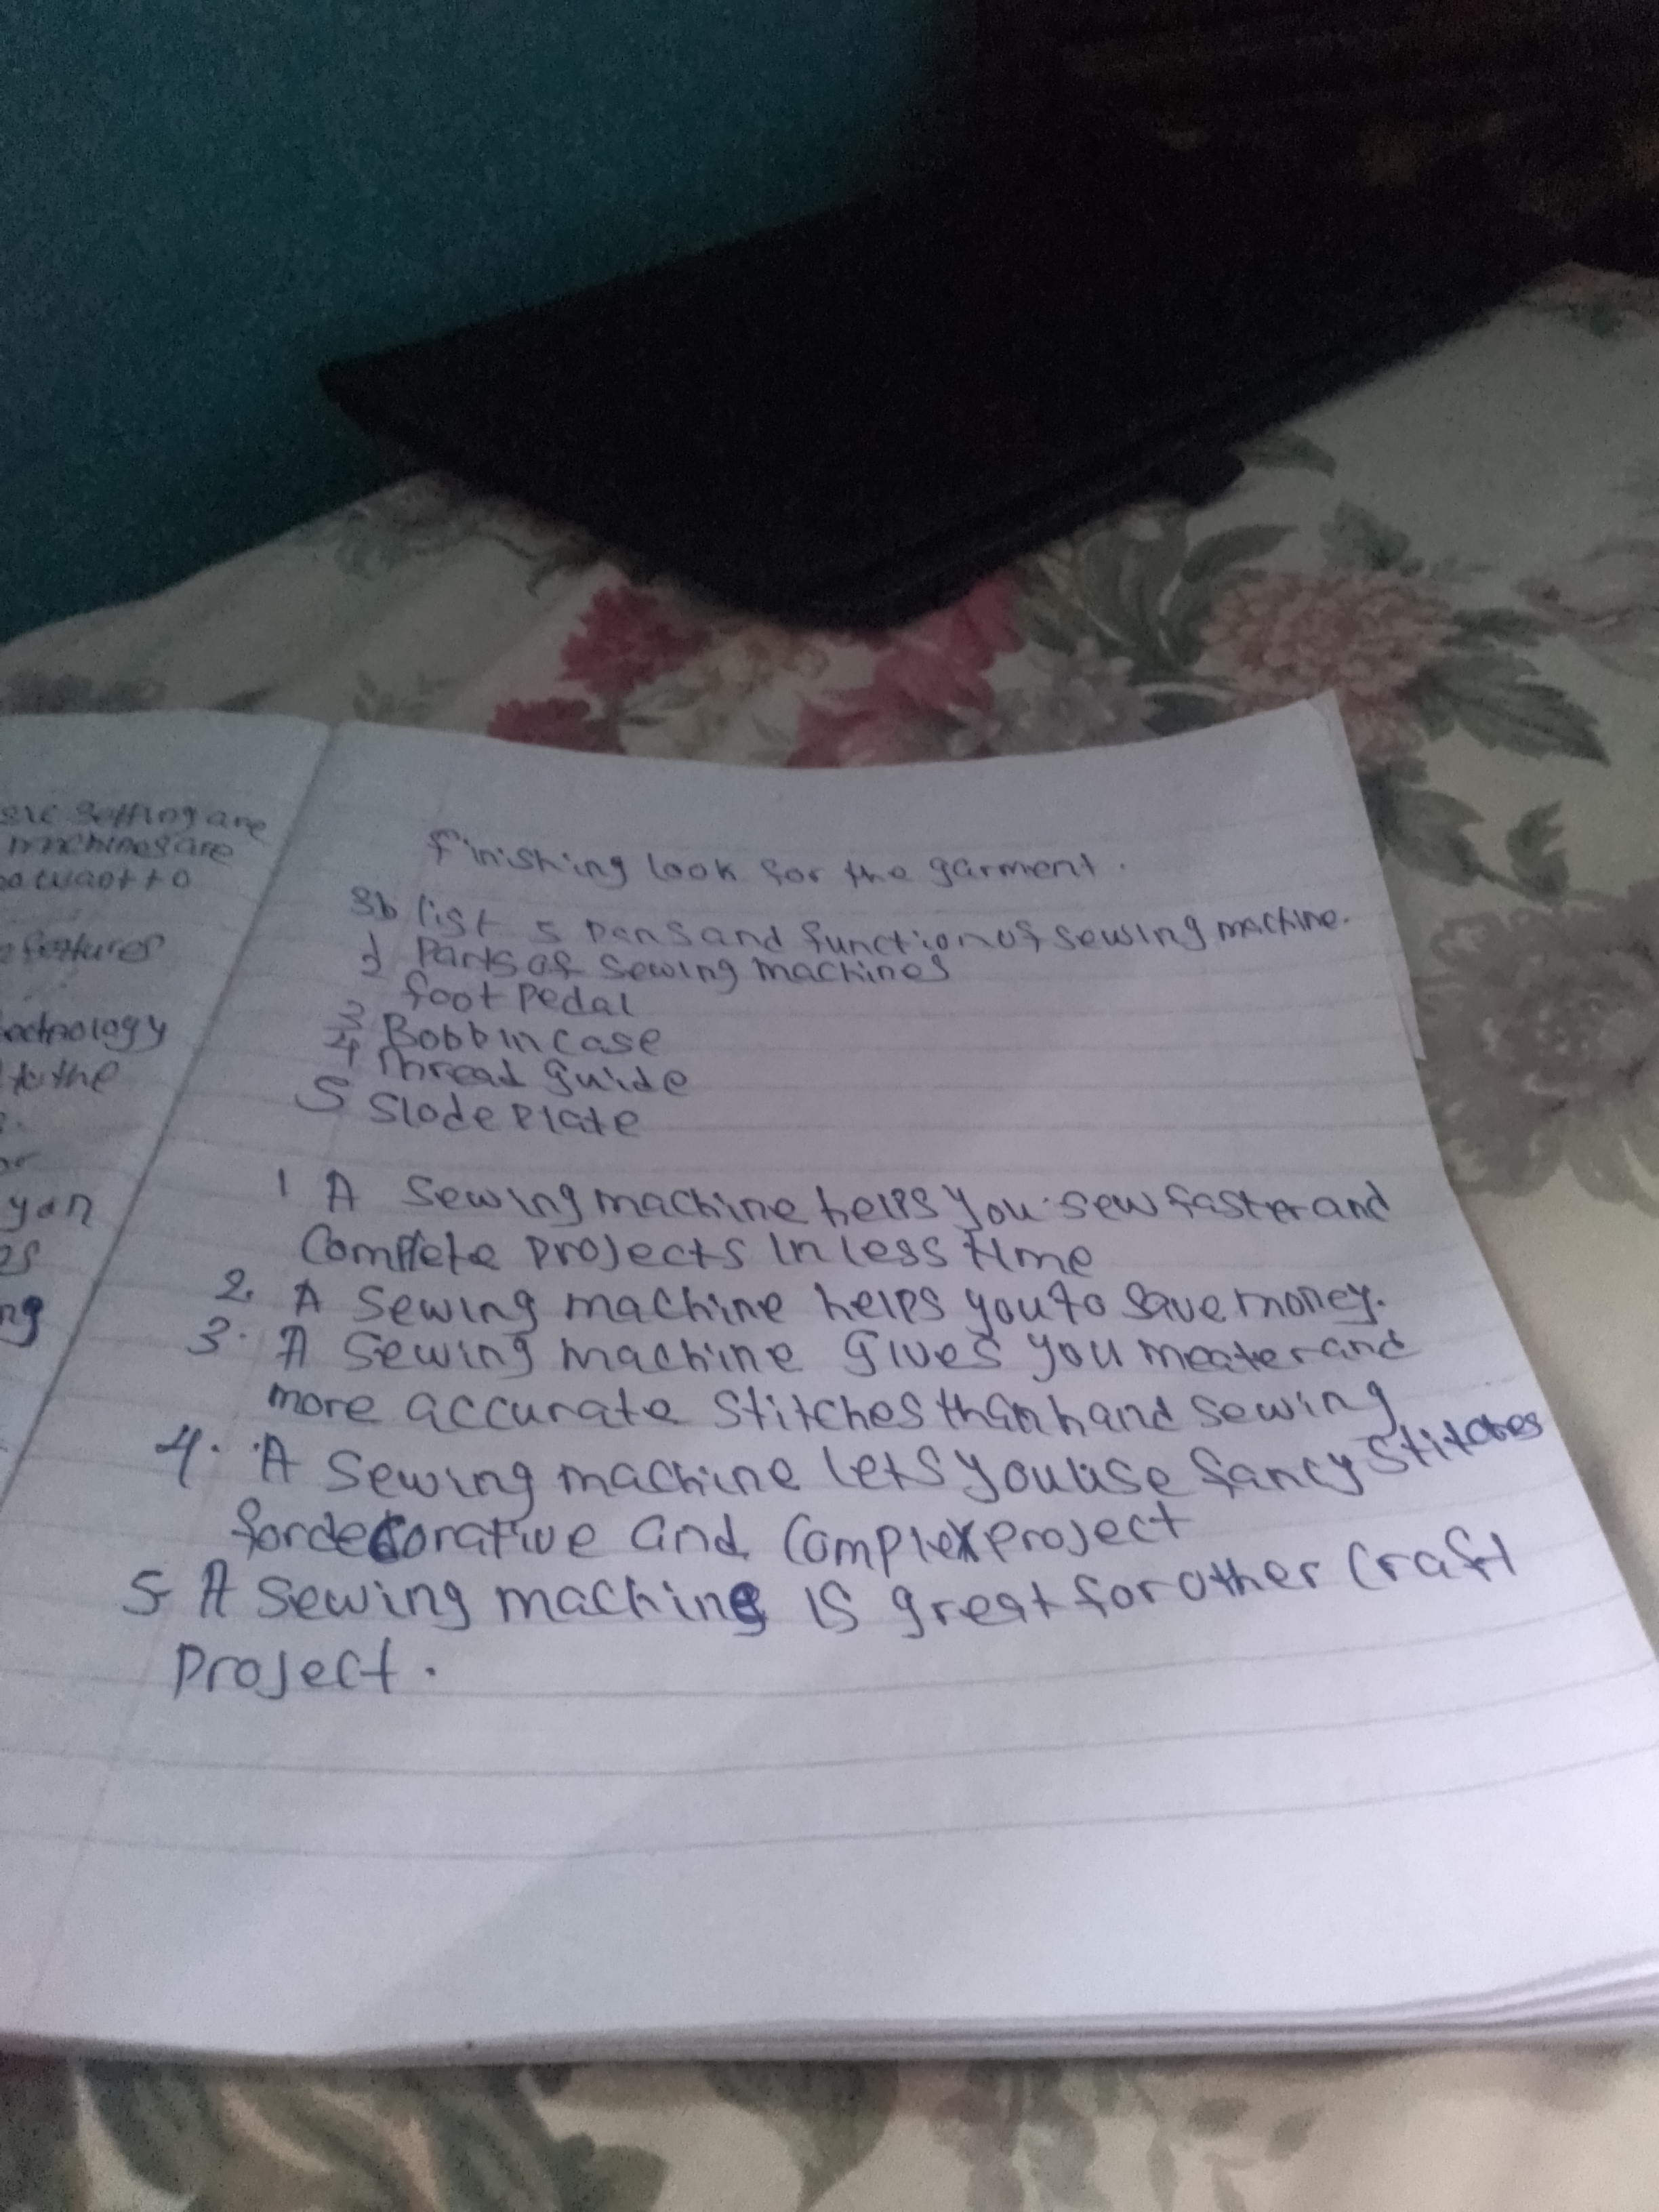 setting are
machines are
features
technology
to the
yan
es
ng
finishing look for the garment.
3b list 5 Pans and function of sewing machine.
1 Parts of sewing machines
2 foot Pedal
3 Bobbin case
4 Thread guide
5 Slode Plate
1 A Sewing machine helps you sew faster and
Complete Projects in less time
2. A Sewing machine helps you to save money.
3. A Sewing machine gives you meater and
more accurate stitches than hand sewing
4. A Sewing machine lets you use fancy stitches
for decorative and Complex Project
5 A Sewing machine is great for other Craft
Project.